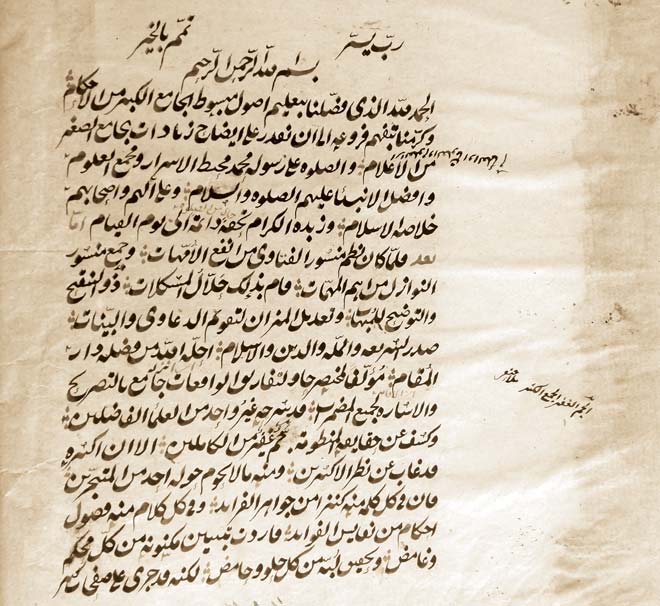 ربّ يسّر تمّم بالخير
بسم الله الرحمن الرحيم
الحمد لله الذى فضّلنا بتعليم اصول مبسوط الجامع الكبير من الاحكام
وكرّمنا بتفهيم فروعه الى ان نقدر على ايضاح زيادات بجامع الصغير
من الاعلام والصلوة على رسوله محمد محيط الاسرار ومجمع العلوم
وافضل الانبياء عليهم الصلوة والسلام وعلى آلهم واصحابهم
خلاصة الاسلام وزبدة الكرام تحفة دائمة الى يوم القيام اما
بعد فلمّا كان نظم منثور الفتاوى من انفع الامهات وجمع منثور
النوازل من اهم المهمات قام بذلك حلّال المشكلات ذو التنقيح
والتوضيح للمبهمات وتعديل الميزان لتقويم الدعاوى والبينات
صدر الشريعه والملّه والدين والاسلام احلّه الله من فضله دار
المقام مؤلّفا لمختصر حاو لتفاريق الواقعات جامع بالتصريح
والاشاره لجميع المضمرات قد شرحه غير واحد من العلماء الفاضلين
وكشف عن حقايقه المنظومة جم غفير من الكاملين الا ان اكثره
قد غاب عن نظر الاكثرين ومنه ما لا يحوم حوله احد من المتبحّرين
فان فى كل كلمه منه كنزا من جواهر الفرائد وفى كل كلام منه فصول
احكام من نفايس الفوائد فاردت تبيين مكنونه من كل محكم
وغامض لكنه قد جرى على صفحى
الجم الغفير الجمع الكثير